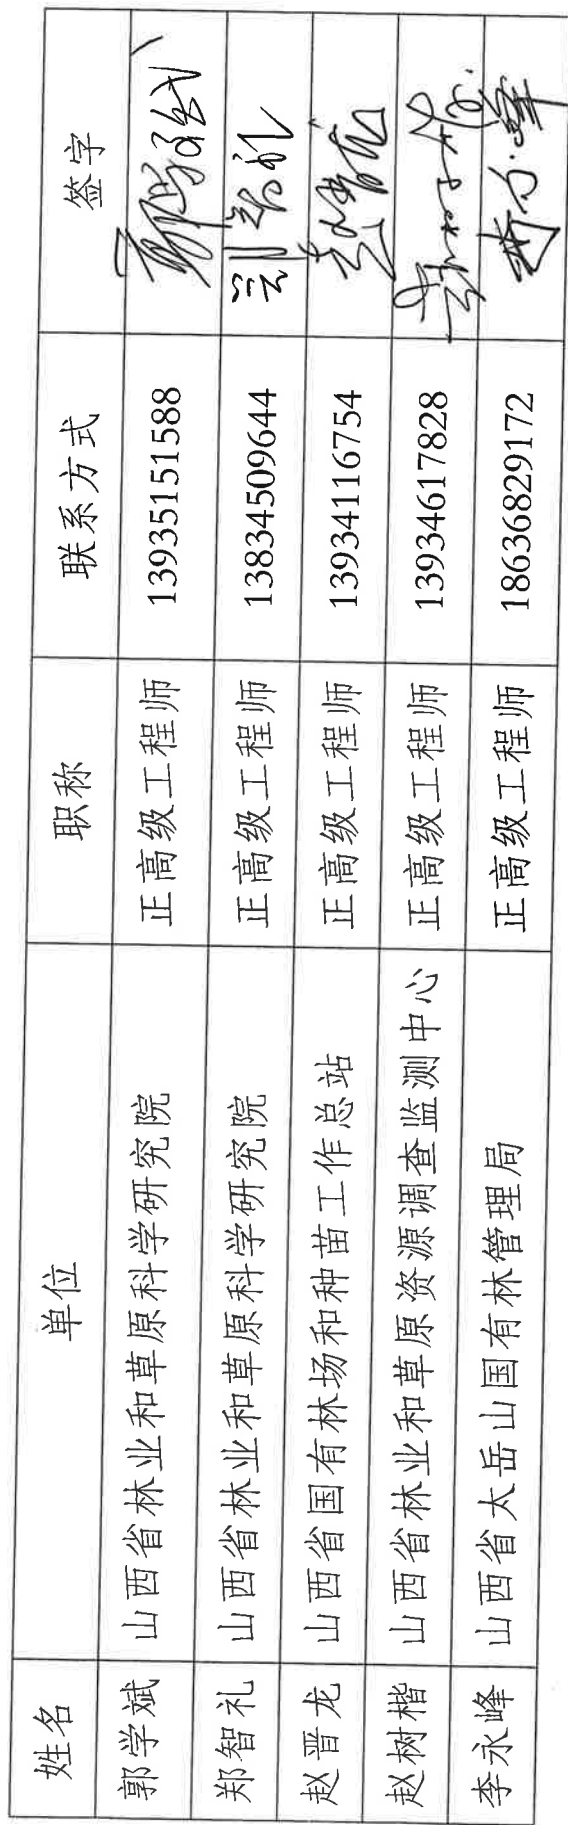 姓名 单位 职称 联系方式 签字
郭学斌 山西省林业和草原科学研究院 正高级工程师 13935151588 郭学斌
郑智礼 山西省林业和草原科学研究院 正高级工程师 13834509644
赵晋龙 山西省国有林场和种苗工作总站 正高级工程师 13934116754
赵树楷 山西省林业和草原资源调查监测中心 正高级工程师 13934617828
李永峰 山西省太岳山国有林管理局 正高级工程师 18636829172